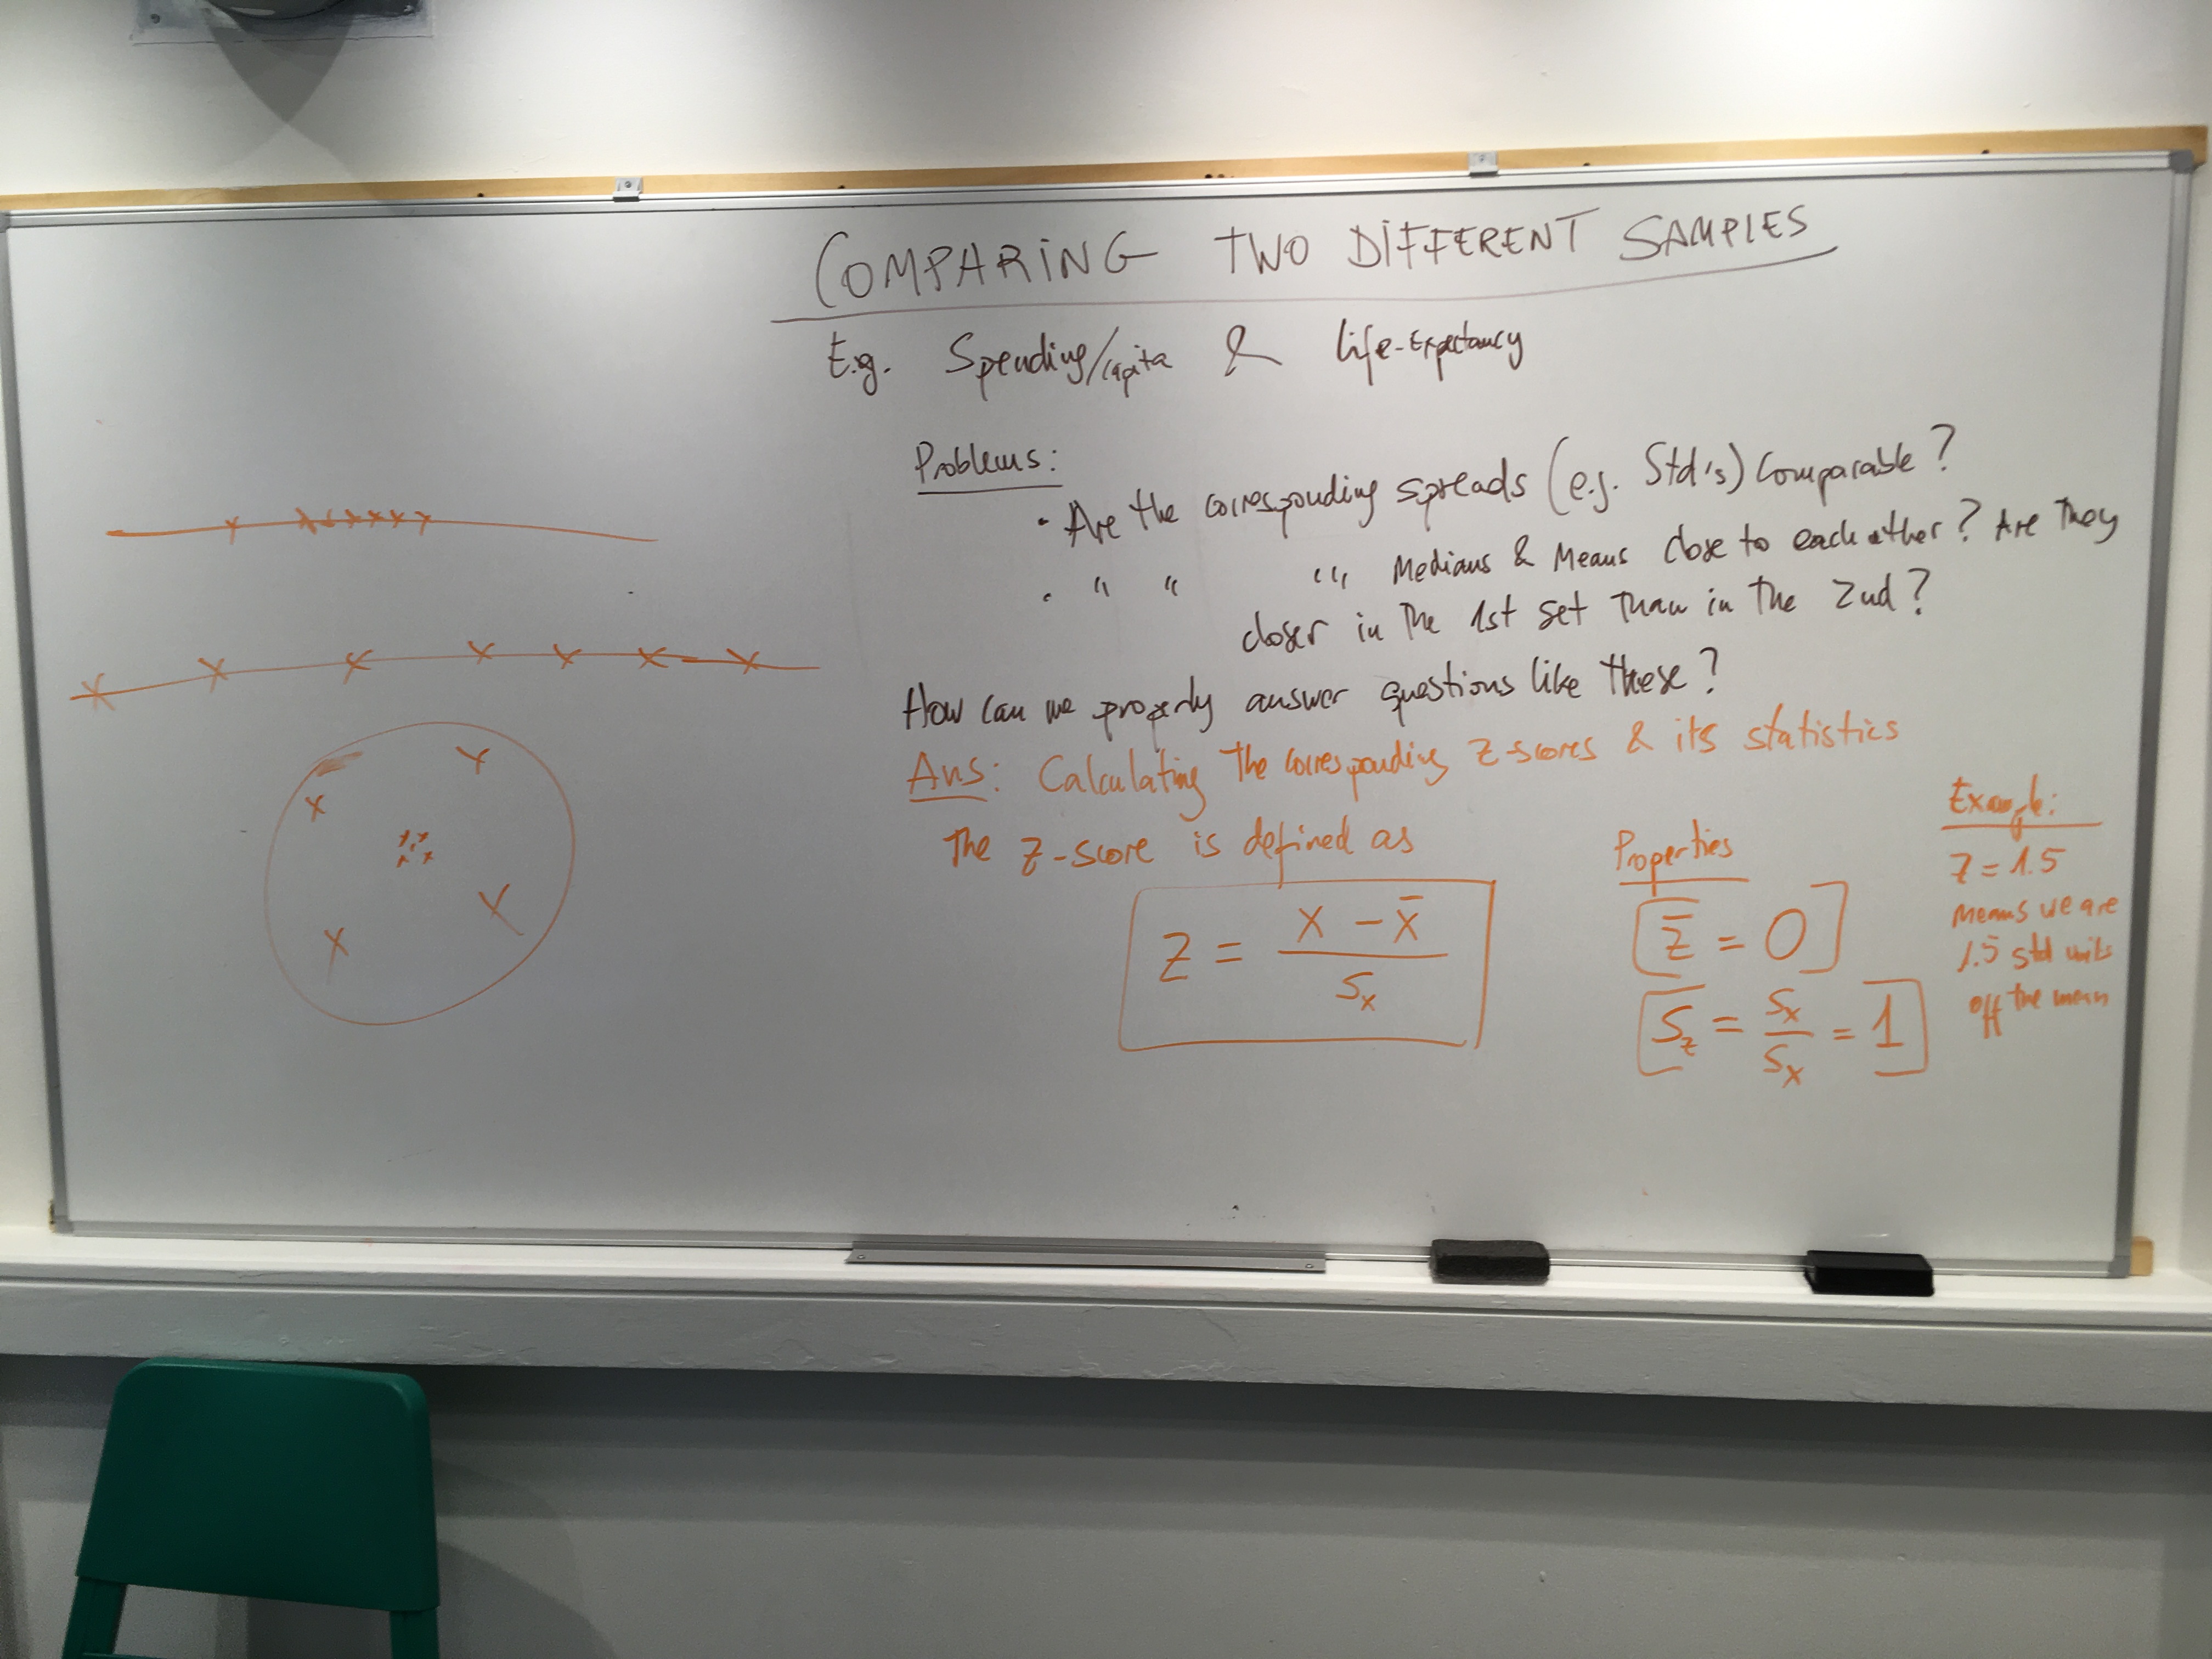 COMPARING TWO DIFFERENT SAMPLES
E.g. Spending/capita & Life-Expectancy
Problems:
• Are the corresponding spreads (e.g. Std's) comparable?
• " " "" Medians & Means close to each other? Are They
closer in The 1st set Than in The 2nd?
How can we properly answer questions like these?
Ans: Calculating The corresponding Z-scores & its statistics
The z-score is defined as
Z = (x - x̄) / Sx
Properties
[z̄ = 0]
[Sz = Sx / Sx = 1]
Example:
Z = 1.5
Means we are
1.5 std units
off the mean